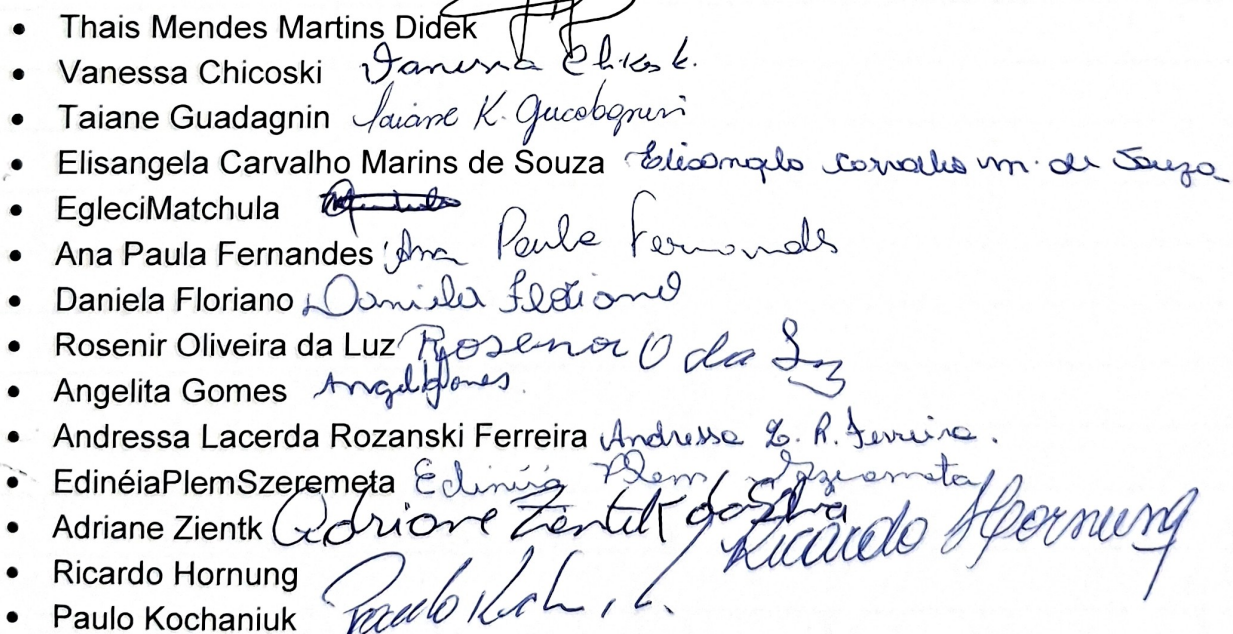 • Thais Mendes Martins Didek
• Vanessa Chicoski Vanessa
• Taiane Guadagnin Taiane K.
• Elisangela Carvalho Marins de Souza Elisangela Carvalho M. de Souza
• EgleciMatchula
• Ana Paula Fernandes Ana Paula Fernandes
• Daniela Floriano Daniela Floriano
• Rosenir Oliveira da Luz Rosenir O da Luz
• Angelita Gomes
• Andressa Lacerda Rozanski Ferreira Andressa L. R. Ferreira.
• EdinéiaPlemSzeremeta Edinéia Plem Szeremeta
• Adriane Zientk Adriane Zientk da Silva
• Ricardo Hornung Ricardo Hornung
• Paulo Kochaniuk Paulo